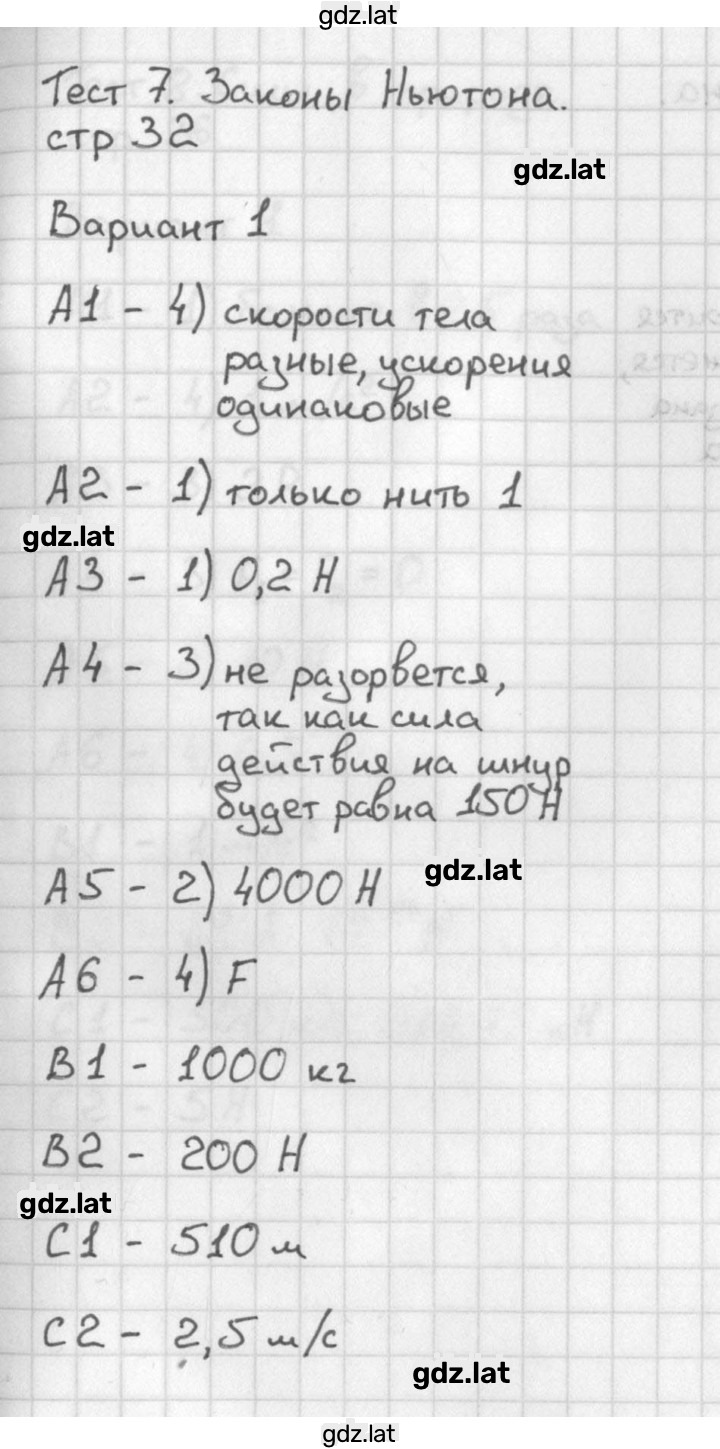 gdz.lat
Тест 7. Законы Ньютона.
стр 32
gdz.lat
Вариант 1
А1 - 4) скорости тела
разные, ускорения
одинаковые
А2 - 1) только нить 1
gdz.lat
А3 - 1) 0,2 Н
А4 - 3) не разорвется,
так как сила
действия на шнур
будет равна 150 Н
gdz.lat
А5 - 2) 4000 Н
А6 - 4) F
В1 - 1000 кг
В2 - 200 Н
gdz.lat
С1 - 510 м
С2 - 2,5 м/с
gdz.lat
gdz.lat